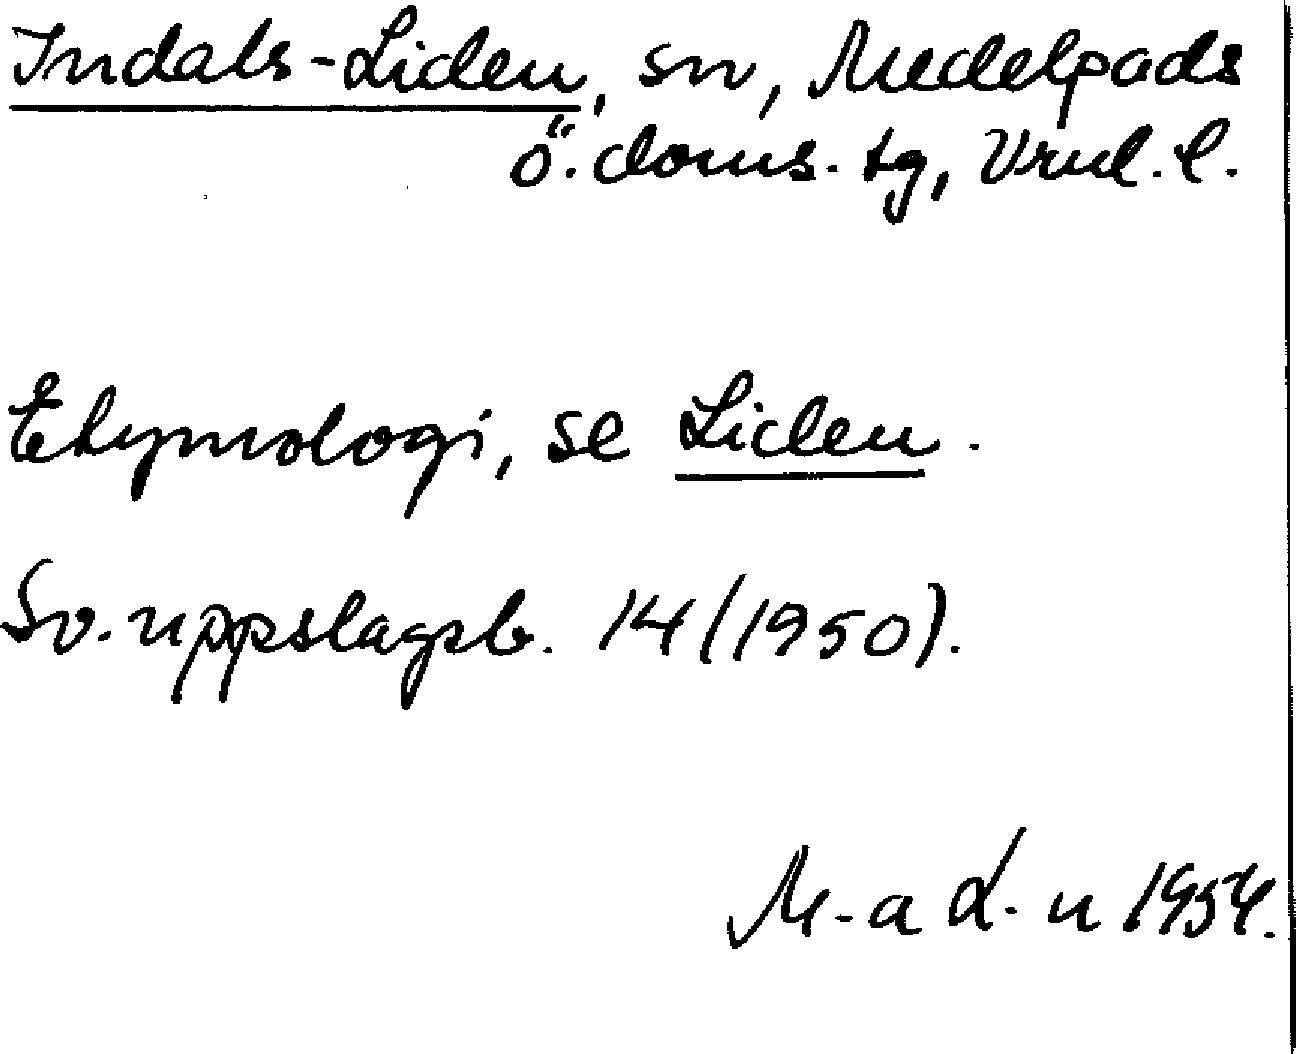 Indals-Liden, sn, Medelpads
ö. doms. tg, Vrnl. l.
Etymologi, se Liden.
Sv. uppslagsb. 14 (1950).
M-a L-n 1954.